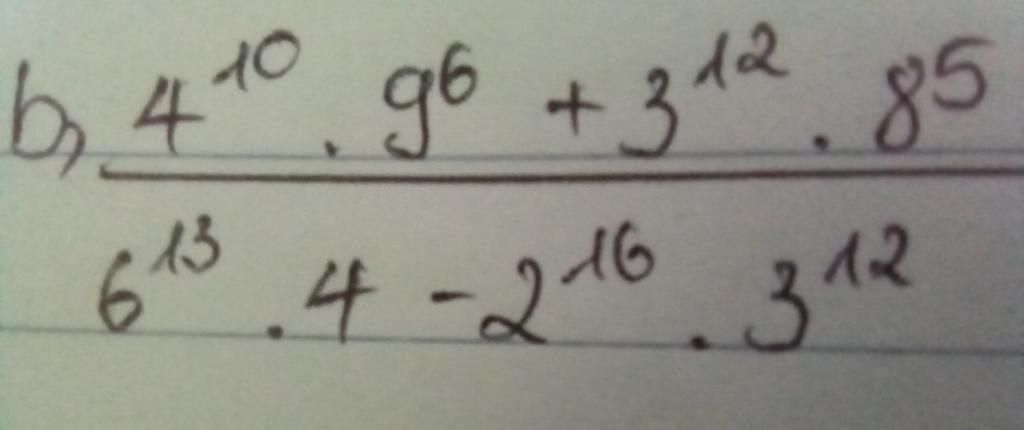 b, 4^10 . 9^6 + 3^12 . 8^5
6^13 . 4 - 2^16 . 3^12